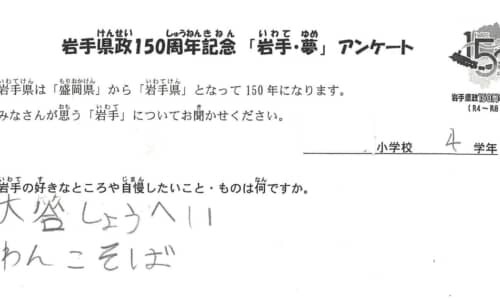 岩手県政150周年記念 「岩手・夢」 アンケート
岩手県は「盛岡県」から「岩手県」となって150年になります。
みなさんが思う「岩手」についてお聞かせください。
岩手県政150周年
(R4～R8
小学校 4 学年
岩手の好きなところや自慢したいこと・ものは何ですか。
大答しょうへい
わんこそば